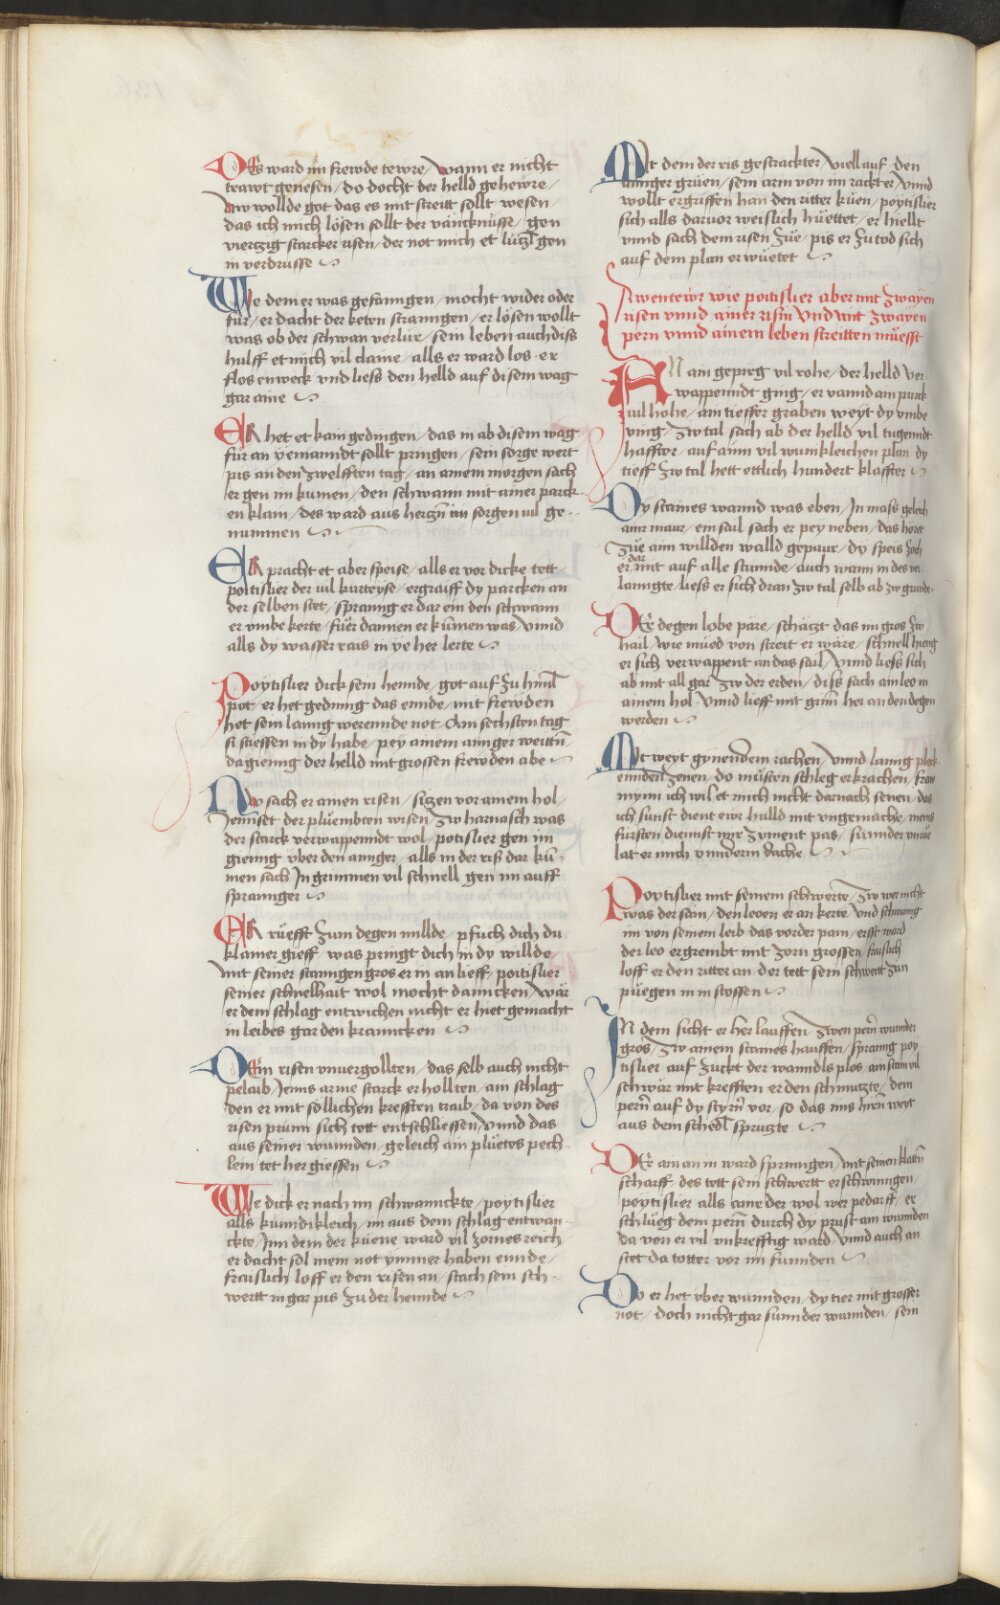 DEs ward im frewde tewre / wann er nicht
trawt genesen / do docht der helld gehewre /
Nw wollde got das es mit streitt sollt wesen /
das ich mich lösen sollt der vänncknüsse / gen
viertzig starcker risen / der not mich et lützl gen
in verdrusse
WIe dem er was gefanngen / mocht wider oder
für / er dacht der keten stranngen / er lösen wollt
was ob der schwan verlür / sein leben auch diss
hulff et mich vil claine / alls er ward los · er
flos enweck vnd liess den helld auf disem wag
gar aine
ER het et kain gedingen / das in ab disem wag
für an yemanndt sollt pringen / sein sorge wert
pis an den zwelfften tag / an ainem morgen sach
er gen im kumen / den schwann mit ainer parck
en klain / des ward aus hertzn im sorgen vil ge
nummen
ER pracht et aber speise / alls er vor dicke tett
poitislier der vil kurteyse / ergraiff dy parcken an
der selben stet / spranng er dar ein den schwann
er vmbe kerte / füer dannen er kumen was / vnnd
alls dy wasser rais in ye her lerte
Poytislier dick sein hennde / got auf zu himl
pot / er het gedinng das ennde / mit frewden
het sein lanng werennde not / Am sechsten tag
si stiessen in dy habe / pey ainem annger weittn
da gienng der helld mit grossen frewden abe
NAw sach er ainen risen / sitzen vor ainem hol /
Jennset der plüembten wisen / zw harnasch was
der starck verwappenndt wol / potislier gen im
gienng vber den annger / alls in der riss dar ku
men sach / In grimmen vil schnell gen im auff
sprannger
ER rüefft zum degen millde / pfuch dich du
klainer gieff / was pringt dich in dy willde /
mit seiner stanngen gros er in an lieff / poitislier
seiner schnelhait wol mocht danncken / wär
er dem schlag entwichen nicht er hiet gemacht
in leibes gar den kranncken
DEm risen vnuergollten / das selb auch nicht
pelaib / Jenns arme starck er hollten / ain schlag
den er mit söllichen krefften traib / da von des
risen prünn sich tett entschliessen / vnnd das
aus seiner wunnden / geleich ain plüetes pech
lein tet her giessen
WIe dick er nach im schwannckte / poytislier
alls kunndikleich / im aus dem schlag entwan
ckte / Jnn dem der küene ward vil zornes reich
er dacht sol mein not ymmer haben ennde /
fraislich loff er den risen an / stach sein sch
wertt in gar pis zu der hennde
MIt dem der ris gestrackter / viell auf den
annger grüen / sein arm von im rackt er / vnnd
wollt ergriffen han den ritter küen / poytislier
sich alls daruor weislich hüettet / er hiellt
vnnd sach dem risen züe / pis er zu tod sich
auf dem plan erwüetet
Awentewr wie poitislier aber mit zwayen
risen vnnd ainer risin Vnd mit zwayen
pern vnnd ainem leben streitten müesst
AN ain gepirg vil rohe / der helld ver
wappenndt ging / er vannd ain purck
vil hohe / ain tieffer graben weyt dy vmbe
ving / zw tal sach ab der helld vil tugenndt
haffter / auf ainn vil wunnkleichen plan dy
tieff zw tal hett ettlich hundert klaffter
Dy staines wannd was eben / In mass geleich
ainr maur / ein sail sach er pey neben / das hort
züe ainn willden walld gepaur / dy speis zoch
er der mit auf alle stunnde / auch wann in des ver
lanngte / liess er sich dran zw tal selb ab zw grunde
DEr degen lobe pare / schätzt das im gros zw
hail / wie müed von streit er wäre / schnell hieng
er sich verwappent an das sail / Vnnd liess sich
ab mit all gar zw der erden / diss sach ain leo in
ainem hol / vnnd lieff mit grim her an den degen
werden
MIt weyt gynendem rachen / Vnnd lanng pleck
ennden zenen / do müsten schleg erkrachen / fraw
mynn ich wil et mich nicht darnach senen / das
ich sunst dient ewr hulld mit vngemache / mens
fürsten diennst mir zyment pas / sunnder mwe
lat er mich vnnderm dache
Poytislier mit seinem schwerte / zw wer nicht
was der sain / den leoen er an kerte / Vnd schwanng
im von seinem leib das vorder pain / erst ward
der leo ergrembt mit zorn grossen / fraislich
loff er den ritter an / der tett sein schwertt zun
püegen in in stossen
IN dem sicht er her lauffen / zwen pern wunnder
gros / zw ainem staines hauffen / spranng poy
tislier auf zuckt der wanndls plos / ain stain vil
schwär mit krefften er den schmutzte / dem
pern auf dy styrn vor / so das ims hiern weyt
aus dem schedl sprutzte
DEr ain an in ward springen / mit seinen klattn
scharff / des tett sein schwertt erschwinngen /
poytislier alls aine der wol wer pedarff / er
schlueg dem pern durch dy prust ain wunnden
da von er vil vnkrefftig ward / Vnnd auch an
stet da totter vor im funnden
Do er het vber wunnden / dy tier mit grosser
not / doch nicht gar sunnder wunnden / sein